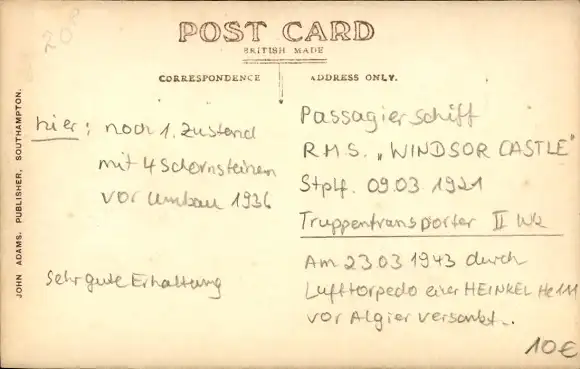 20.
POST CARD
BRITISH MADE
CORRESPONDENCE
ADDRESS ONLY.
JOHN ADAMS. PUBLISHER, SOUTHAMPTON.
hier: noch 1. Zustand
mit 4 Schornsteinen
vor Umbau 1936
Sehr gute Erhaltung
Passagierschiff
R.M.S. „WINDSOR CASTLE"
Stplf. 09.03 1921
Truppentransporter II Wk
Am 23.03 1943 durch
Lufttorpedo einer HEINKEL He 111
vor Algier versenkt..
10€